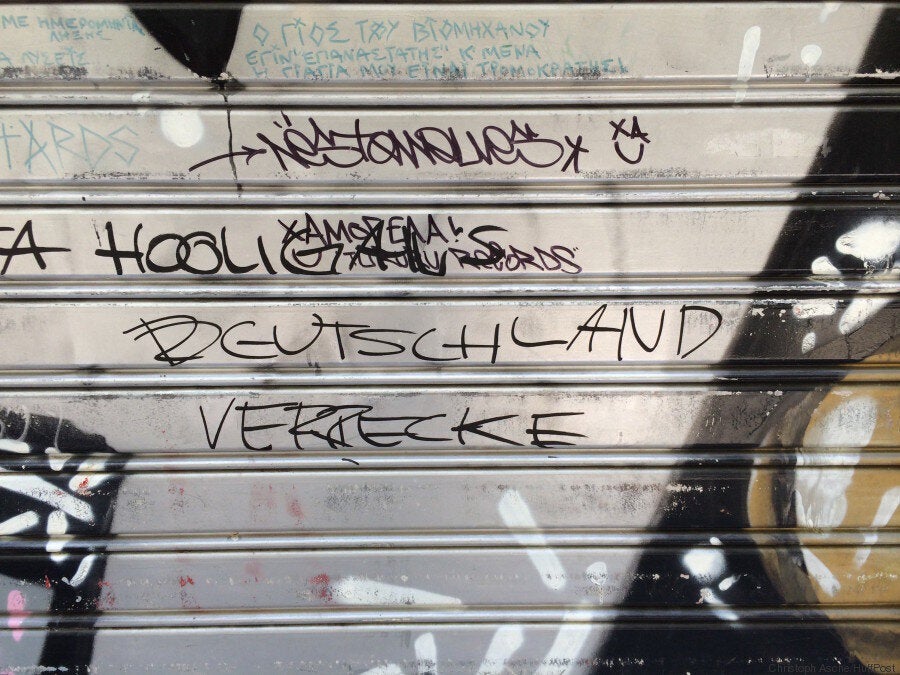 ΜΕ ΗΜΕΡΟΜΗΝΙΑ
ΛΗΞΗΣ
Ο ΓΙΟΣ ΤΟΥ ΒΙΟΜΗΧΑΝΟΥ
ΕΓΙΝ' "ΕΠΑΝΑΣΤΑΤΗΣ" Κ' ΜΕΝΑ
Η ΓΙΑΓΙΑ ΜΟΥ ΕΙΝΑΙ ΤΡΟΜΟΚΡΑΤΗΣ!
TARDS
XA
HOOLIGANS
RECORDS"
DEUTSCHLAND
VERRECKE
Christoph Asche/HuffPost